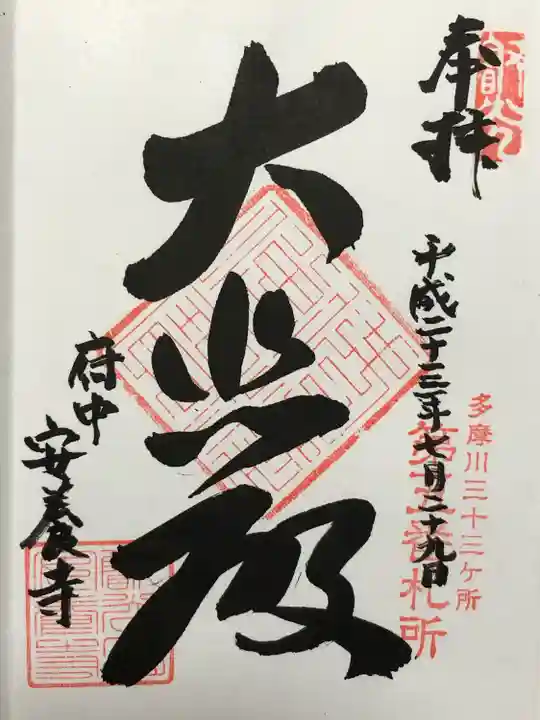 奉拝
平成二十三年七月二十九日
多摩川三十三ヶ所
第十五番札所
大悲殿
府中
安養寺